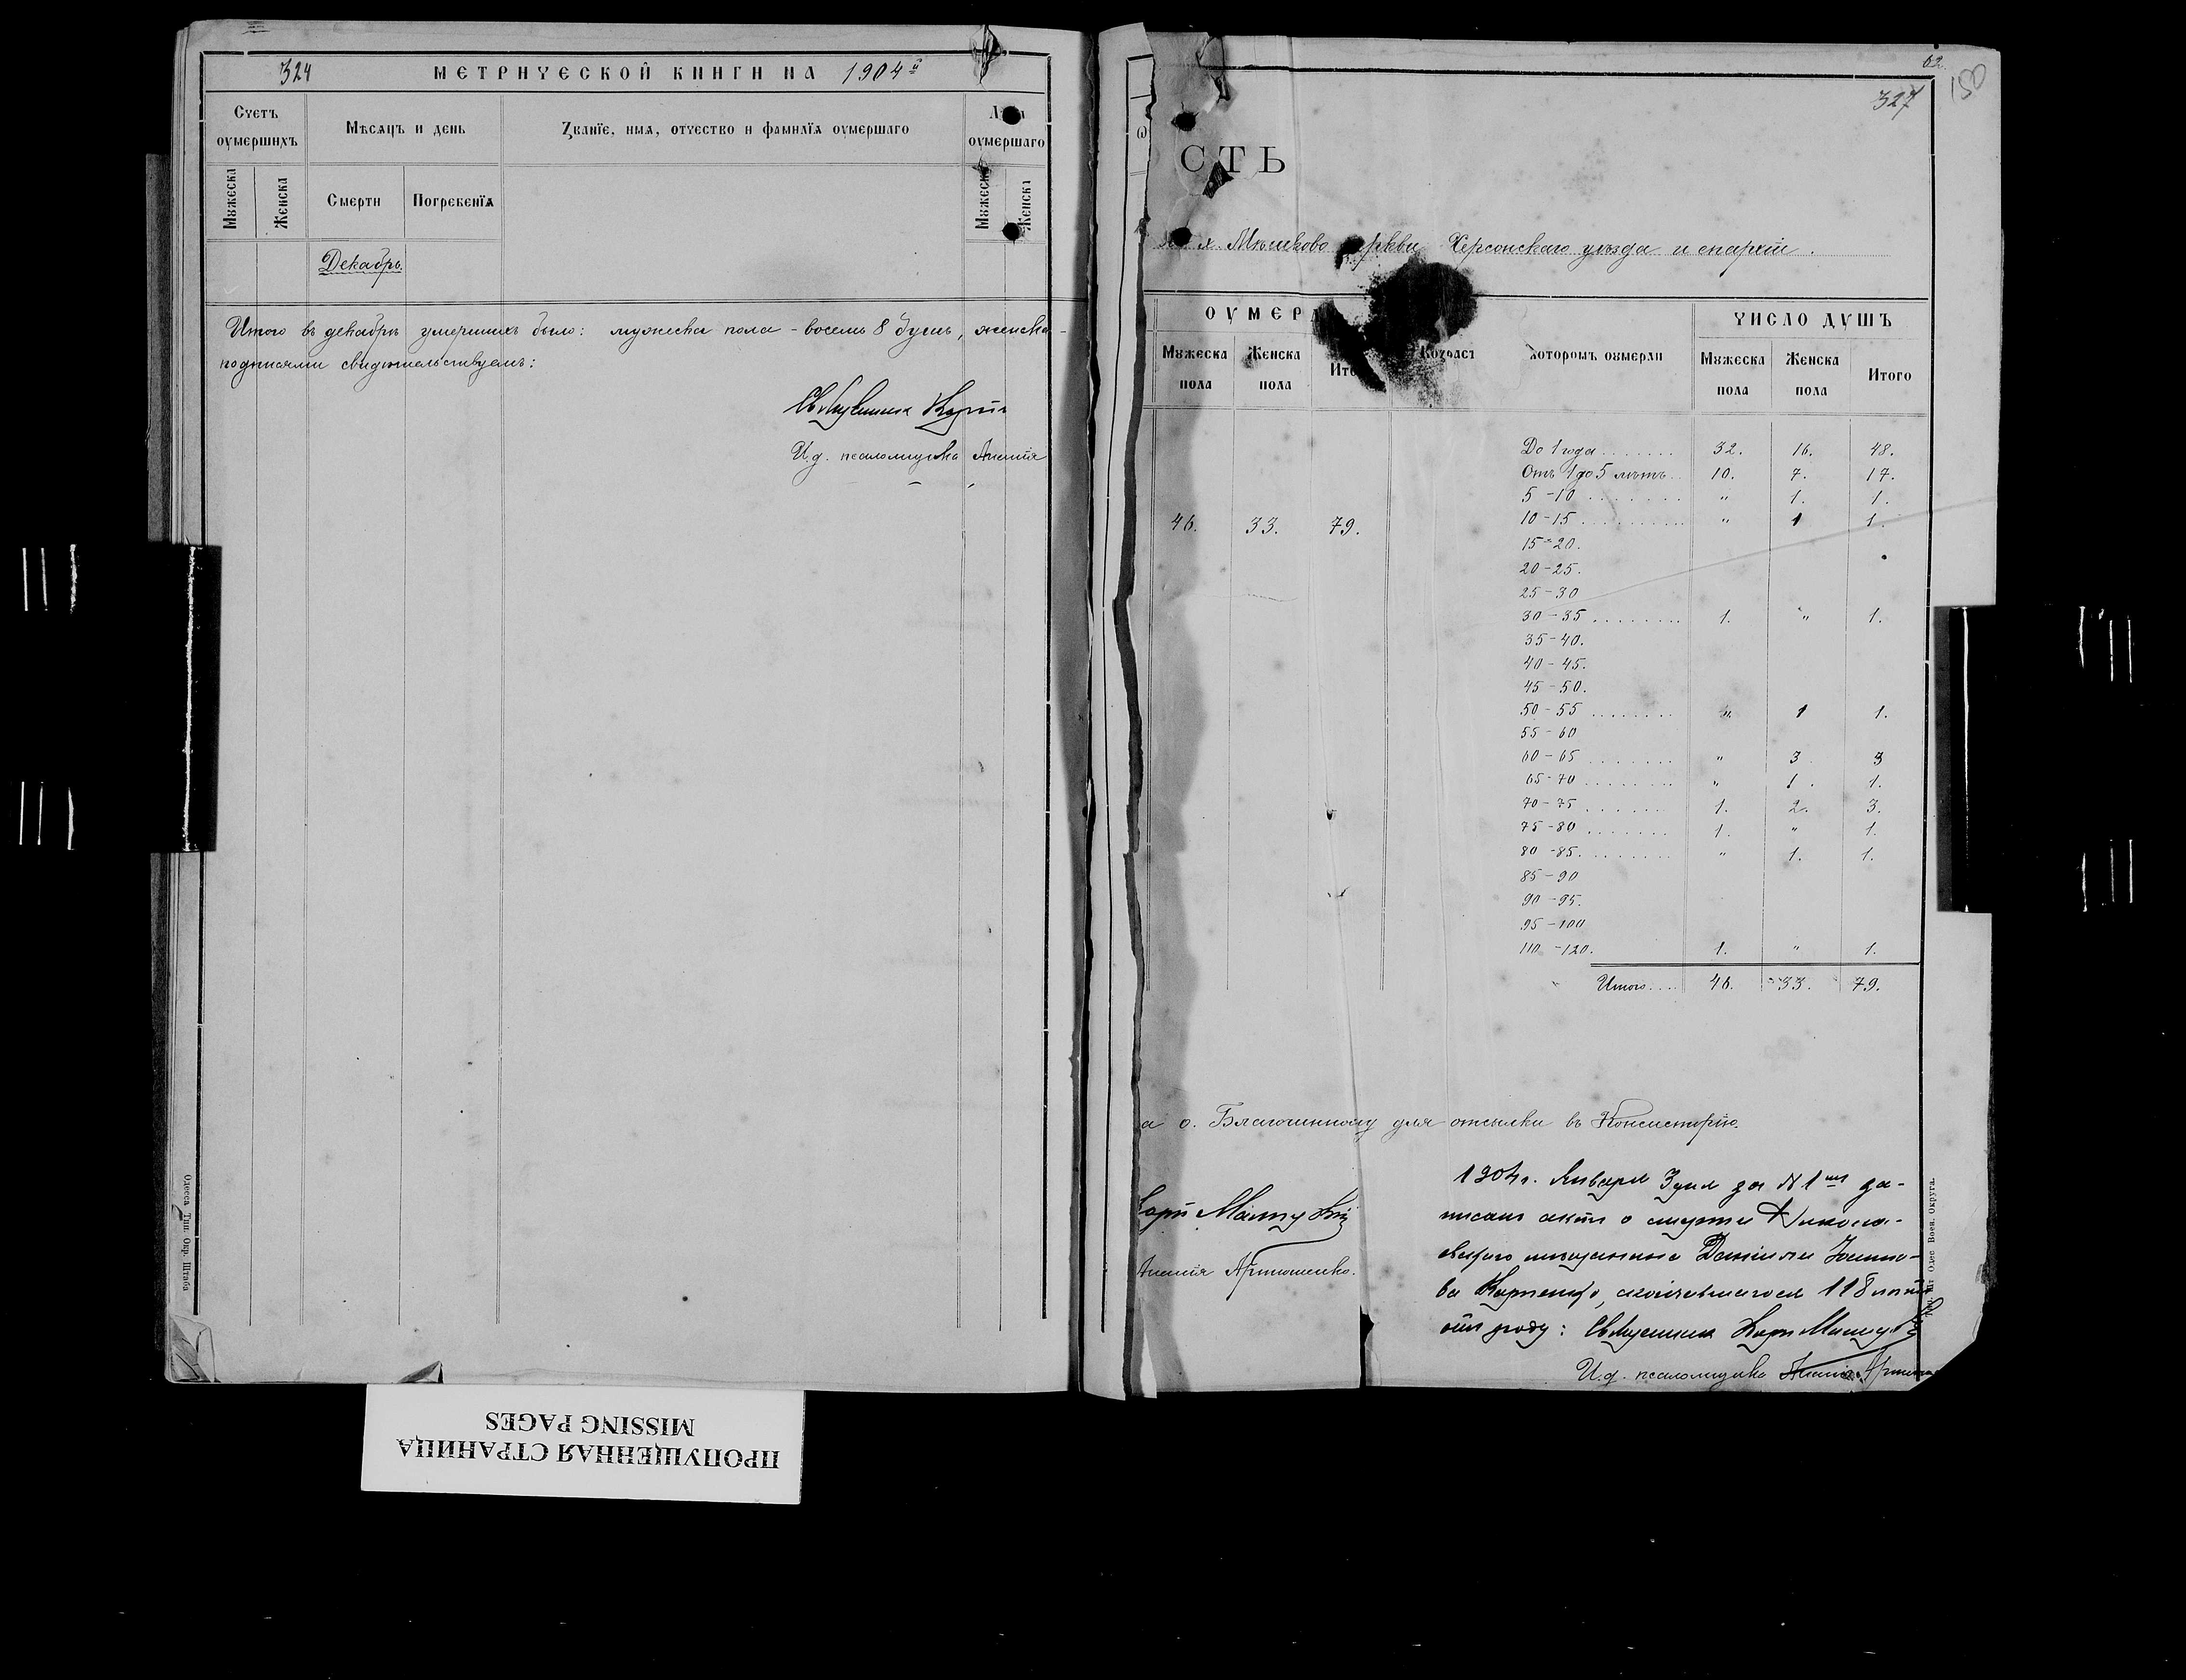 324 МЕТРИЧЕСКОЙ КНИГИ НА 1904й
Счетъ оумершихъ
Мѣсяцъ и день
Званїе, имя, отчество и фамилїя оумершаго
оумершаго
Мужеска
Женска
Смерти
Погребенїя
Мужеска
Женска
Декабрь.
Итого въ декабрѣ умершихъ было: мужеска пола - восемь 8 душъ, женска
подписями свидѣтельствуемъ:
Священникъ
И.д. псаломщика Ананія
Одесса Тип. Окр. Штаба
62
150
327
СТЬ
Мѣшково церкви Херсонскаго уѣзда и епархіи.
ОУМЕР
ЧИСЛО ДУШЪ
Мужеска пола
Женска пола
Ито
Возраст
которомъ оумерли
Мужеска пола
Женска пола
Итого
46. 33. 79.
До 1 года ....... 32. 16. 48.
Отъ 1 до 5 лѣтъ.. 10. 7. 17.
5 - 10 ....... " 1. 1.
10 - 15 ......... " 1 1.
15 - 20.
20 - 25.
25 - 30
30 - 35 ........ 1. " 1.
35 - 40.
40 - 45.
45 - 50.
50 - 55 ........ " 1 1.
55 - 60
60 - 65 ....... " 3 3
65 - 70 ........ " 1. 1.
70 - 75 ...... 1. 2. 3.
75 - 80 ....... 1. " 1.
80 - 85. ....... " 1. 1.
85 - 90
90 - 95.
95 - 100
110 - 120. 1. " 1.
Итого.... 46. 33. 79.
а о. Благочинному для отсылки въ Консисторію.
Ананія Артюшенко.
1904 г. Января 3 дня за N 1мъ за-
писанъ актъ о смерти Никола-
евскаго мѣщанина Даніила Іоанно-
ва, скончавшагося 118 лѣтъ
отъ роду: Священникъ
И.д. псаломщика Ананія
Одес Воен. Округа.
ПРОПУЩЕННАЯ СТРАНИЦА
MISSING PAGES